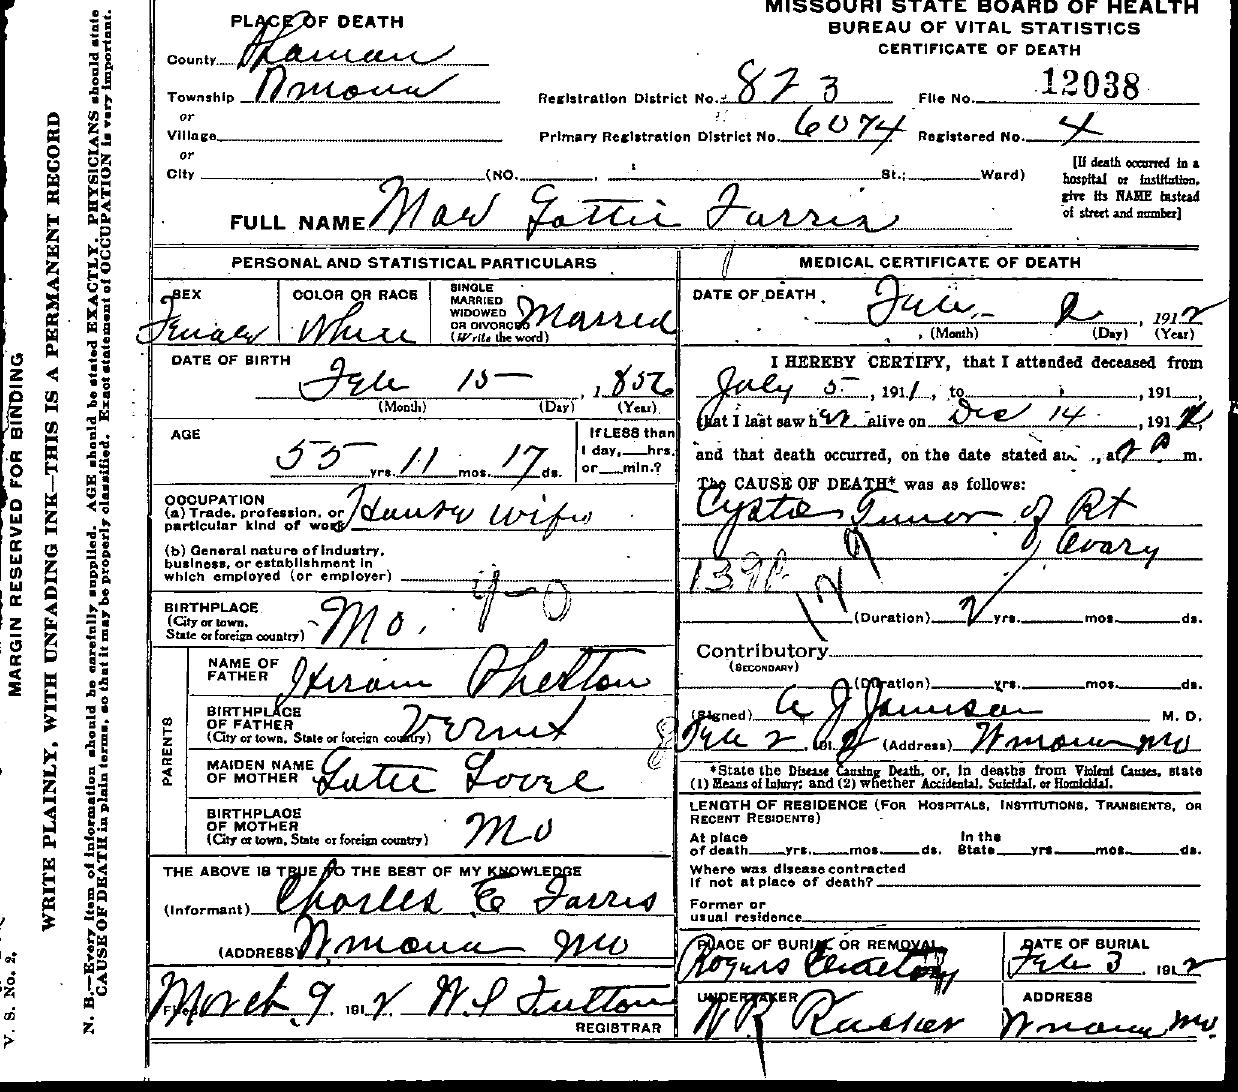 MISSOURI STATE BOARD OF HEALTH
BUREAU OF VITAL STATISTICS
CERTIFICATE OF DEATH
PLACE OF DEATH
County
Township
or
Village
or
City (NO. St.; Ward)
Registration District No. 823 File No. 12038
Primary Registration District No. 6074 Registered No. 4
[If death occurred in a
hospital or institution,
give its NAME instead
of street and number]
FULL NAME Farris
PERSONAL AND STATISTICAL PARTICULARS
SEX Female
COLOR OR RACE White
SINGLE
MARRIED
WIDOWED
OR DIVORCED
(Write the word) Married
DATE OF BIRTH
Feb 15, 1856
(Month) (Day) (Year)
AGE
55 yrs. 11 mos. 17 ds.
If LESS than
1 day, hrs.
or min.?
OCCUPATION
(a) Trade, profession, or
particular kind of work House wife
(b) General nature of industry,
business, or establishment in
which employed (or employer)
9-0
BIRTHPLACE
(City or town,
State or foreign country) Mo.
PARENTS
NAME OF
FATHER Hiram
BIRTHPLACE
OF FATHER
(City or town, State or foreign country)
MAIDEN NAME
OF MOTHER
BIRTHPLACE
OF MOTHER
(City or town, State or foreign country) Mo
THE ABOVE IS TRUE TO THE BEST OF MY KNOWLEDGE
(Informant) Charles E Farris
(ADDRESS) Mo
Filed March 9 1912 Fulton
REGISTRAR
MEDICAL CERTIFICATE OF DEATH
DATE OF DEATH
Feb. 2, 1912
(Month) (Day) (Year)
I HEREBY CERTIFY, that I attended deceased from
July 5, 1911, to , 191 ,
that I last saw her alive on Dec 14, 191
and that death occurred, on the date stated above, at 2 P m.
The CAUSE OF DEATH* was as follows:
Cystic Tumor of Rt
Ovary
129
(Duration) 2 yrs. mos. ds.
Contributory
(SECONDARY)
(Duration) yrs. mos. ds.
(Signed) A J Jamison M. D.
Feb 2 1912 (Address) Mo
*State the Disease Causing Death, or, in deaths from Violent Causes, state
(1) Means of Injury; and (2) whether Accidental, Suicidal, or Homicidal.
LENGTH OF RESIDENCE (FOR HOSPITALS, INSTITUTIONS, TRANSIENTS, OR
RECENT RESIDENTS)
At place
of death yrs. mos. ds.
In the
State yrs. mos. ds.
Where was disease contracted
if not at place of death?
Former or
usual residence
PLACE OF BURIAL OR REMOVAL
Rogers Cemetery
DATE OF BURIAL
Feb 3, 1912
UNDERTAKER
ADDRESS
Mo.
MARGIN RESERVED FOR BINDING
WRITE PLAINLY, WITH UNFADING INK—THIS IS A PERMANENT RECORD
N. B.—Every item of information should be carefully supplied. AGE should be stated EXACTLY. PHYSICIANS should state
CAUSE OF DEATH in plain terms, so that it may be properly classified. Exact statement of OCCUPATION is very important.
V. S. No. 2.